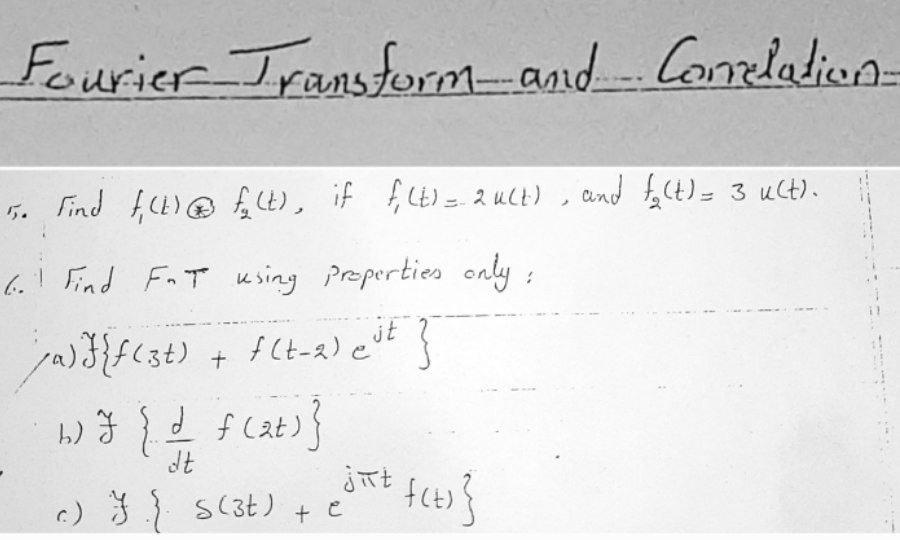 Fourier Transform and Correlation
5. Find f₁(t) ⊛ f₂(t), if f₁(t) = 2 u(t), and f₂(t) = 3 u(t).
6. Find F.T using properties only:
a) ℱ{f(3t) + f(t-2) e^{jt}}
b) ℱ{d/dt f(2t)}
c) ℱ{S(3t) + e^{jπt} f(t)}